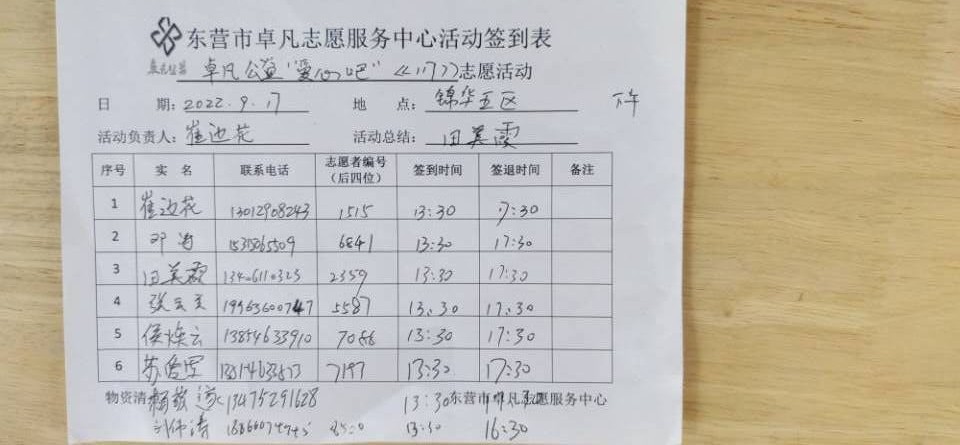 东营市卓凡志愿服务中心活动签到表
卓凡公益“爱心吧”《117》志愿活动
日 期：2022.9.17 地 点：锦华五区 下午
活动负责人：崔池花 活动总结：田美霞
序号 实 名 联系电话 志愿者编号（后四位） 签到时间 签退时间 备注
1 崔池花 13012908243 1515 13:30 17:30
2 邓 6841 13:30 17:30
3 田美霞 13406110323 2359 13:30 17:30
4 张 5587 13:30 17:30
5 侯焕云 13854633910 7086 13:30 17:30
6 苏 7197 13:30 17:30
物资清 13475291628 13:30 东营市卓凡志愿服务中心
16:30